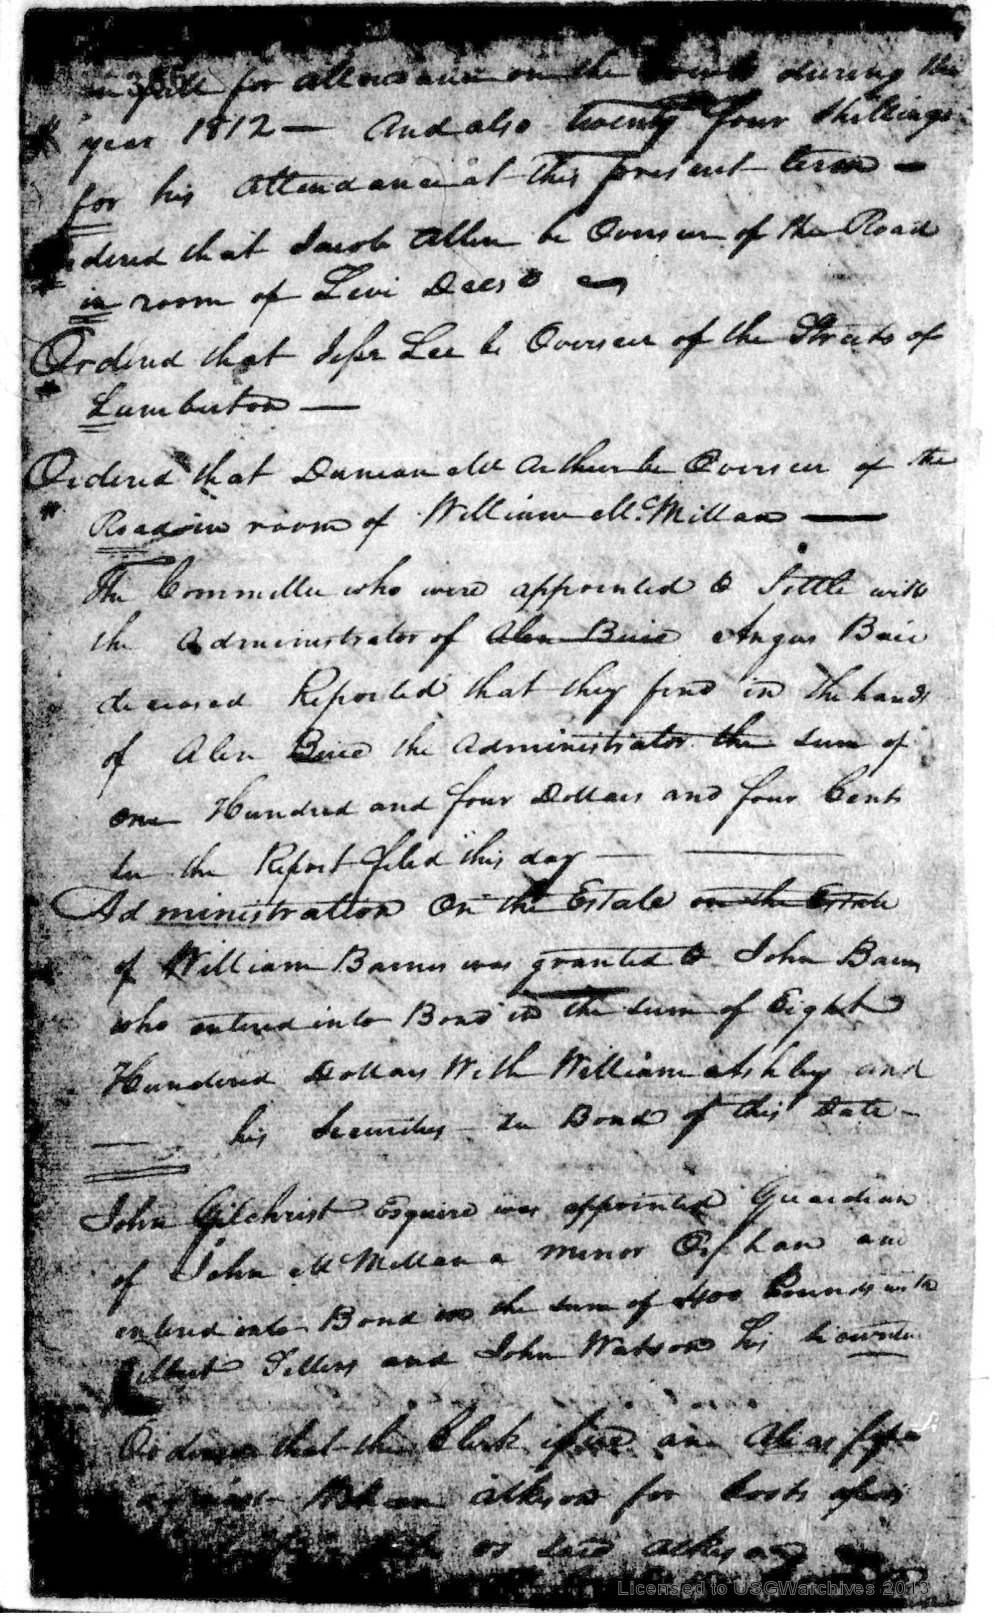 in full for attendance on the Court during the
year 1812 — And also twenty four shillings
for his attendance at this present term —
Ordered that Jacob Allen be Overseer of the Road
in room of Levi Dees
Ordered that Jesse Lee be Overseer of the Streets of
Lumberton —
Ordered that Duncan McArthur be Overseer of the
Road in room of William McMillan —
The Committee who were appointed to Settle with
the Administrator of Alen Buie Angus Buie
deceased Reported that they find in the hands
of Alen Buie the Administrator the sum of
One Hundred and four Dollars and four Cents
See the Report filed this day —
Administration On the Estate on the Estate
of William Barnes was granted to John Barnes
who entered into Bond in the sum of Eight
Hundered Dollars With William Ashley and
— his Securities See Bond of this Date —
John Gilchrist Esquire was appointed Guardian
of John McMillan a minor Orphan and
entered into Bond in the sum of 400 Pounds with
John Watson his
Ordered that the Clerk issue an Alias
against Atkison for Costs
or said Atkison
Licensed to USGWarchives 2013